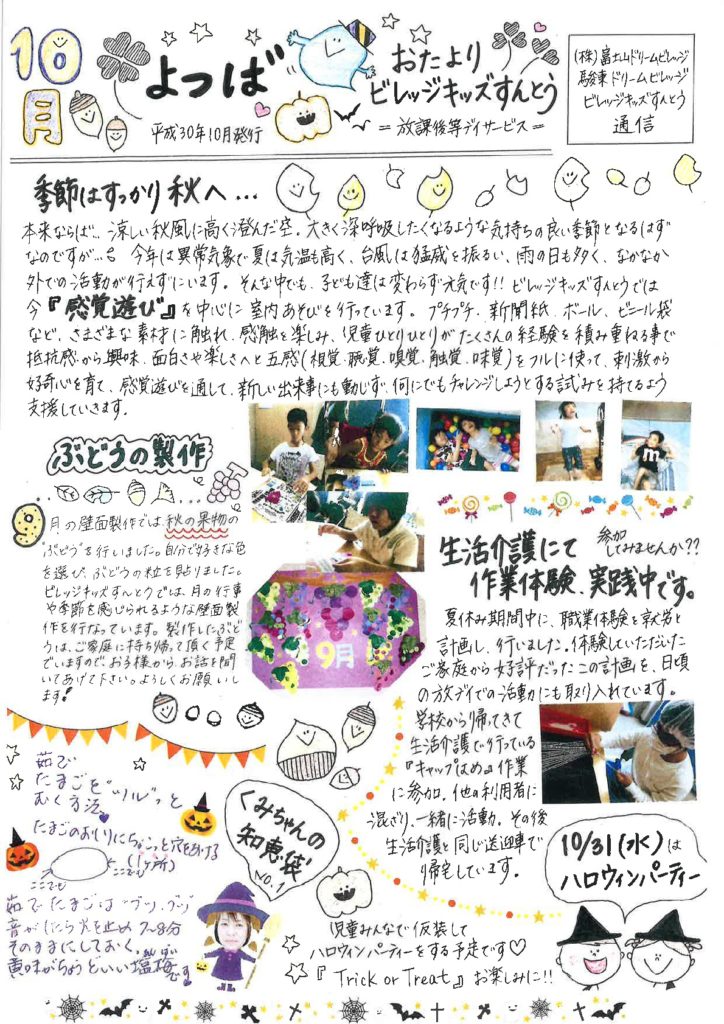 10月
よつば
平成30年10月発行
おたより
ビレッジキッズすんとう
=放課後等デイサービス=
(株)富士山ドリームビレッジ
駿東ドリームビレッジ
ビレッジキッズすんとう
通信
季節はすっかり秋へ…
本来ならば…涼しい秋風に高く澄んだ空。大きく深呼吸したくなるような気持ちの良い季節となるはず
なのですが…。今年は異常気象で夏は気温も高く、台風は猛威を振るい、雨の日も多く、なかなか
外での活動が行えずにいます。そんな中でも、子ども達は変わらず元気です!!ビレッジキッズすんとうでは
今『感覚遊び』を中心に室内あそびを行っています。プチプチ、新聞紙、ボール、ビニール袋
など、さまざまな素材に触れ、感触を楽しみ、児童ひとりひとりがたくさんの経験を積み重ねる事で
抵抗感から興味、面白さや楽しさへと五感(視覚、聴覚、嗅覚、触覚、味覚)をフルに使って、刺激から
好奇心を育て、感覚遊びを通して、新しい出来事にも動じず、何にでもチャレンジしようとする試みを持てるよう
支援していきます。
ぶどうの製作
9月の壁面製作では、秋の果物の
"ぶどう"を行いました。自分で好きな色
を選び、ぶどうの粒を貼りました。
ビレッジキッズすんとうでは、月の行事
や季節を感じられるような壁面製
作を行なっています。製作したぶどう
は、ご家庭に持ち帰って頂く予定
でいますので、お子様から、お話を聞
いてあげて下さい。よろしくお願いし
ます!
9月
生活介護にて
作業体験、実践中です。
参加
してみませんか??
夏休み期間中に、職業体験を就労と
計画し、行いました。体験していただいた
ご家庭から好評だったこの計画を、日頃
の放デイでの活動にも取り入れています。
学校から帰ってきて
生活介護で行っている
『キャップはめ』作業
に参加。他の利用者に
混ざり、一緒に活動。その後
生活介護と同じ送迎車で
帰宅しています。
茹で
たまごを"ツルッ"と
むく方法
たまごのおしりにちょこっと穴をあける
(1ヶ所)
ここでも
ここでも
茹でたまごは"グツ、グツ"
音がしたら火を止め7~8分
そのままにしておく。
黄味がちょうどいい塩梅です。
あんばい
くみちゃんの
知恵袋
NO.1
10/31(水)は
ハロウィンパーティー
児童みんなで仮装して
ハロウィンパーティーをする予定です♡
『Trick or Treat』お楽しみに!!